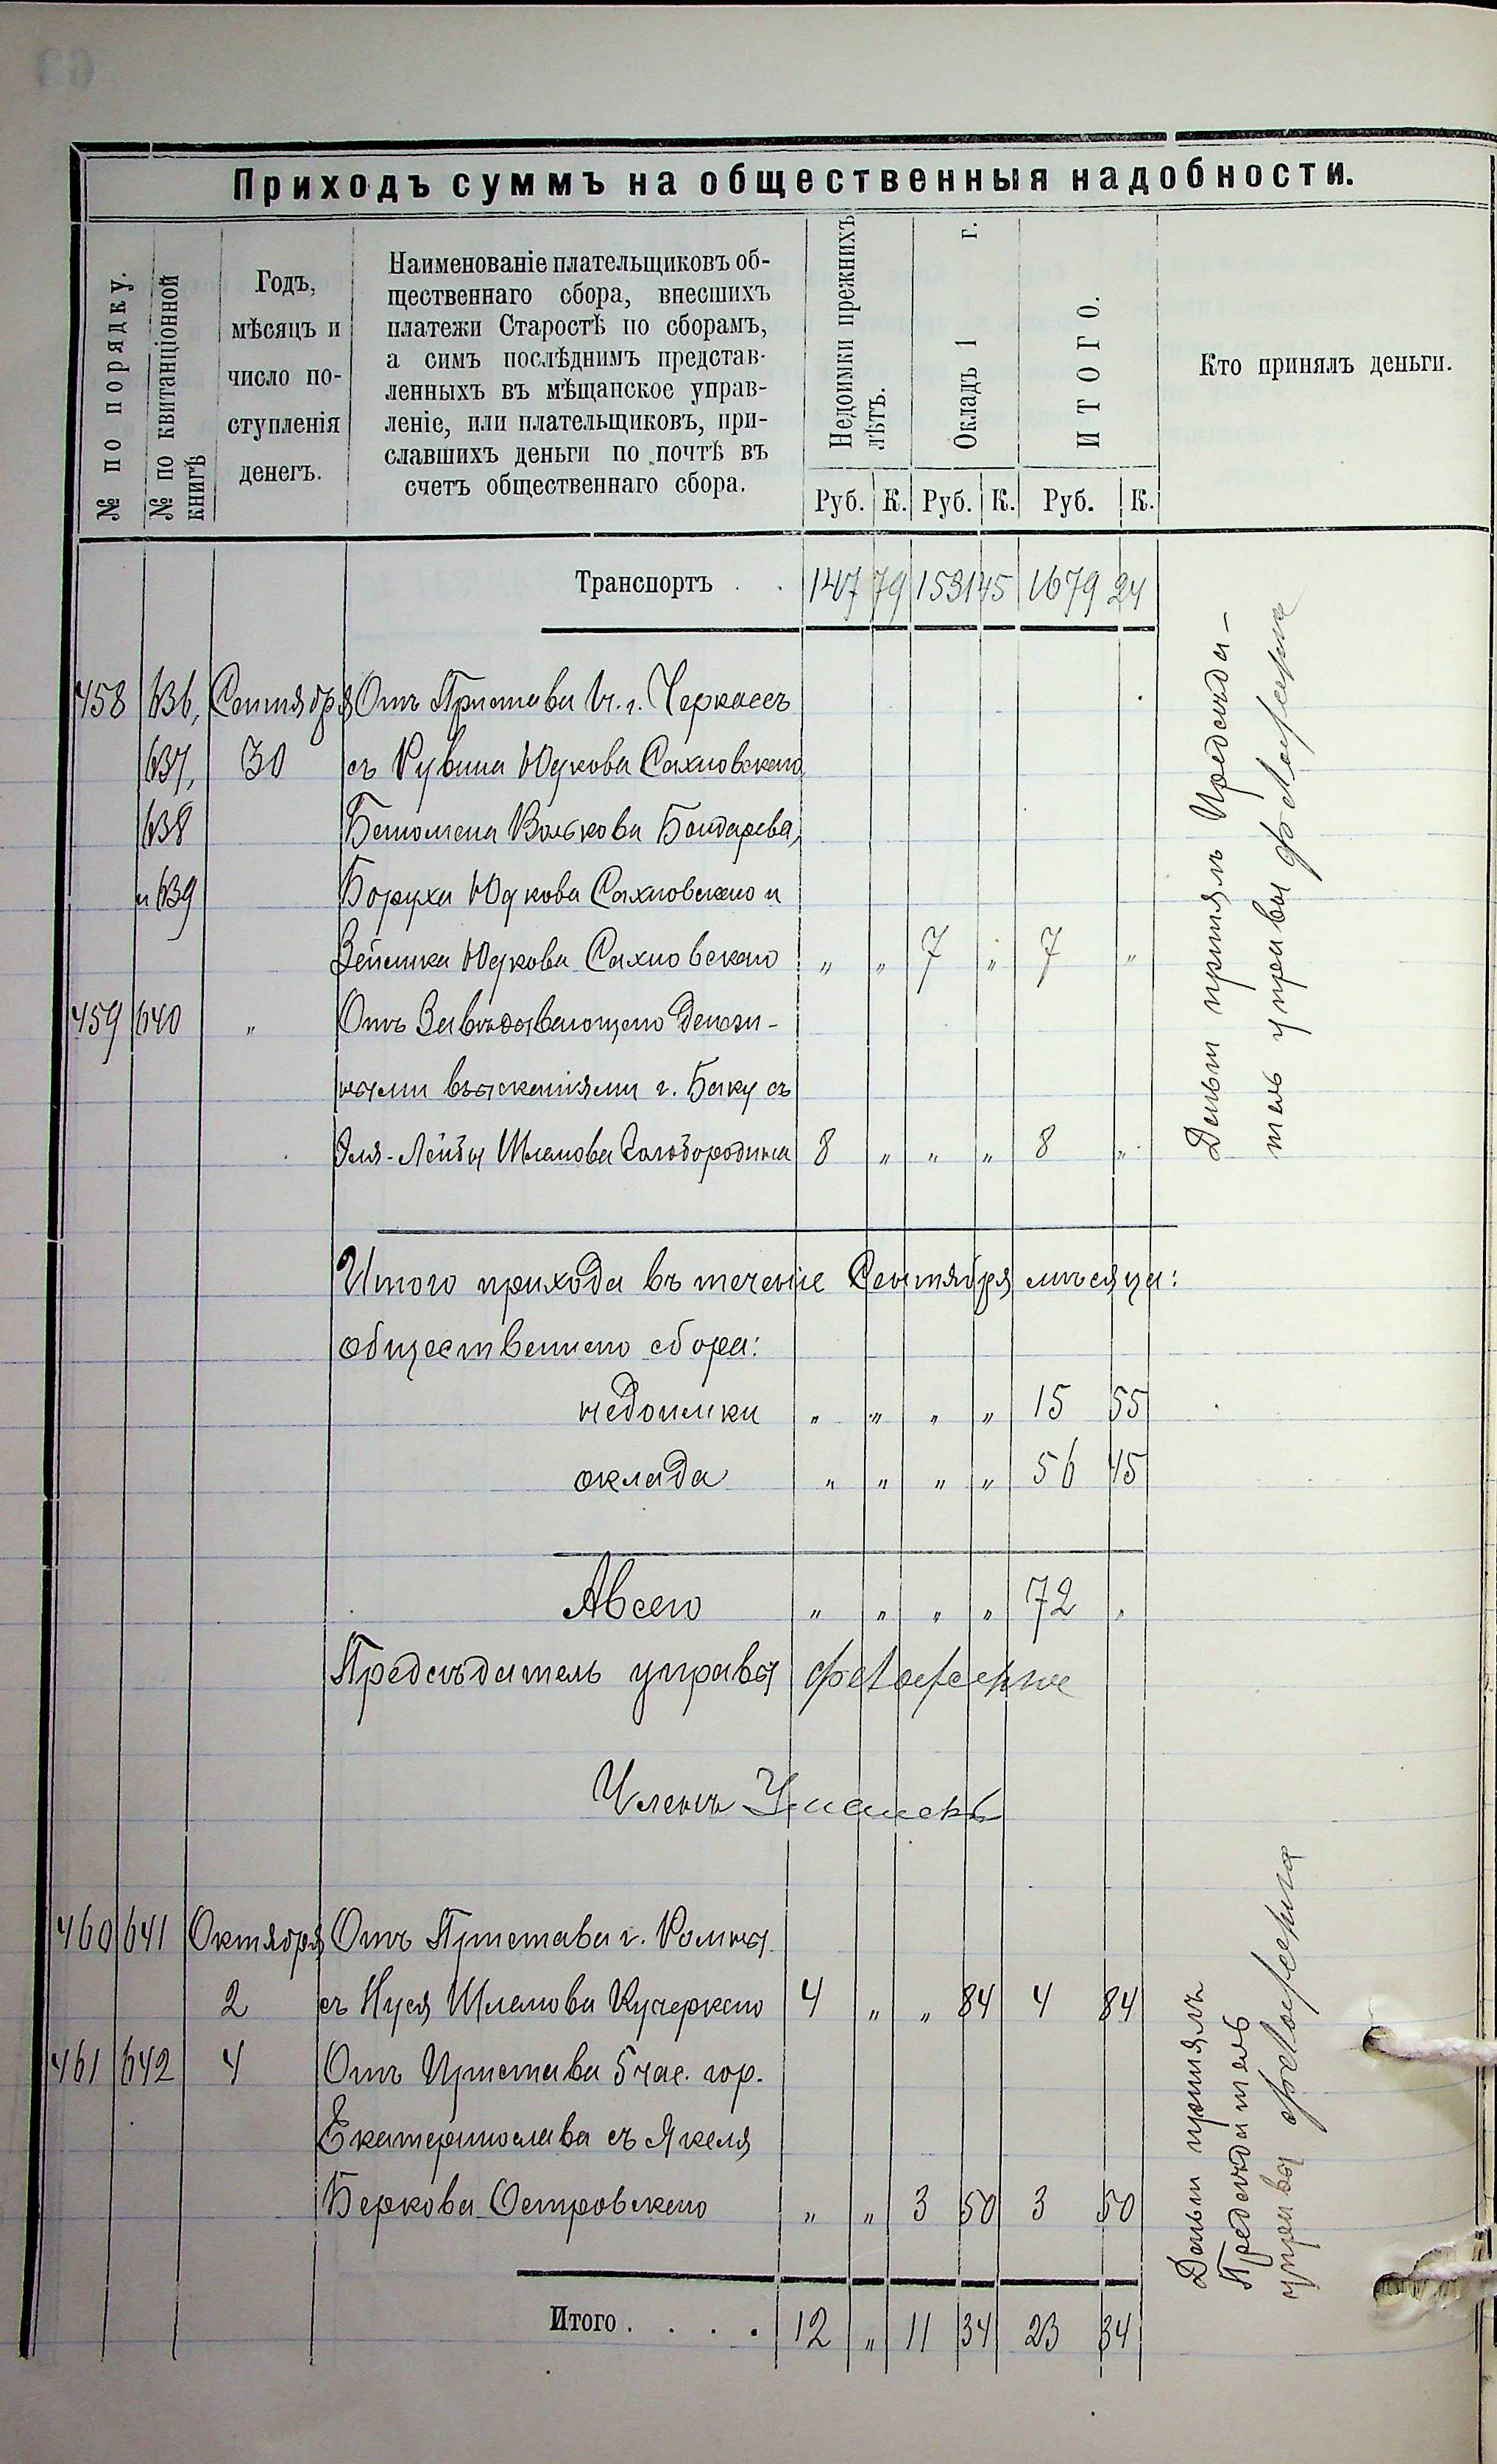 Приходъ суммъ на общественныя надобности.
№ по порядку.
№ по квитанціонной
книгѣ
Годъ,
мѣсяцъ и
число по-
ступленія
денегъ.
Наименованіе плательщиковъ об-
щественнаго сбора, внесшихъ
платежи Старостѣ по сборамъ,
а симъ послѣднимъ представ-
ленныхъ въ мѣщанское управ-
леніе, или плательщиковъ, при-
славшихъ деньги по почтѣ въ
счетъ общественнаго сбора.
Недоимки прежнихъ
лѣтъ.
Окладъ 1 г.
ИТОГО.
Кто принялъ деньги.
Руб. К. Руб. К. Руб. К.
Транспортъ . . 147 79 1531 45 1679 24
458 636, Сентября Отъ Пристава г. Черкассъ
637, 30 съ Рувина Юдкова Сахновскаго
638 Волькова Бондарева,
и 639 Боруха Юдкова Сахновскаго и
Зейлика Юдкова Сахновскаго " " 7 " 7 "
459 640 " Отъ Завѣдывающаго денеж-
ными взысканіями г. Баку съ
Эля-Лейбы Шлемова Голобородина 8 " " " 8 "
Деньги принялъ Предсѣда-
тель управы
Итого прихода въ теченіе Сентября мѣсяца:
общественнаго сбора:
недоимки " " " " 15 55
оклада " " " " 56 45
А всего " " " " 72 "
Предсѣдатель управы
Членъ
460 641 Октября Отъ Пристава г. Ромны
2 съ Нуся Шлемова Кучерскаго 4 " " 84 4 84
461 642 4 Отъ Пристава 5 час. гор.
Екатеринослава съ Янкеля
Беркова Островскаго " " 3 50 3 50
Деньги принялъ
Предсѣдатель
управы
Итого . . . . 12 " 11 34 23 34